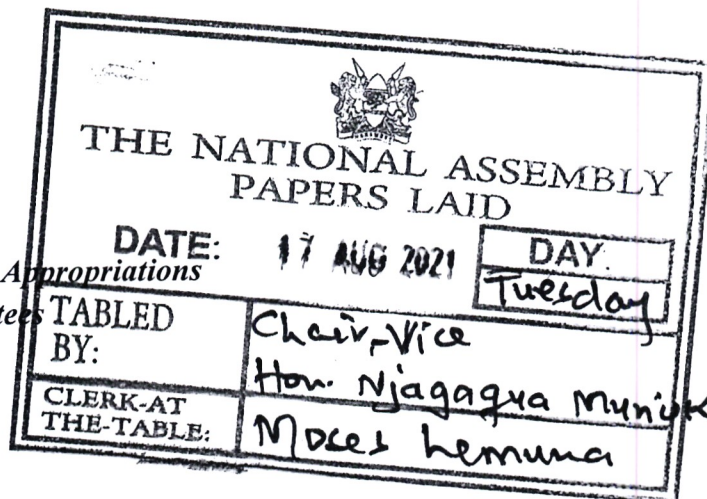 THE NATIONAL ASSEMBLY
PAPERS LAID
DATE: 17 AUG 2021
DAY.
Tuesday
Appropriations
TABLED
BY:
Chair, Vice
Hon. Njagagua
CLERK-AT
THE-TABLE:
Moses Lemuna